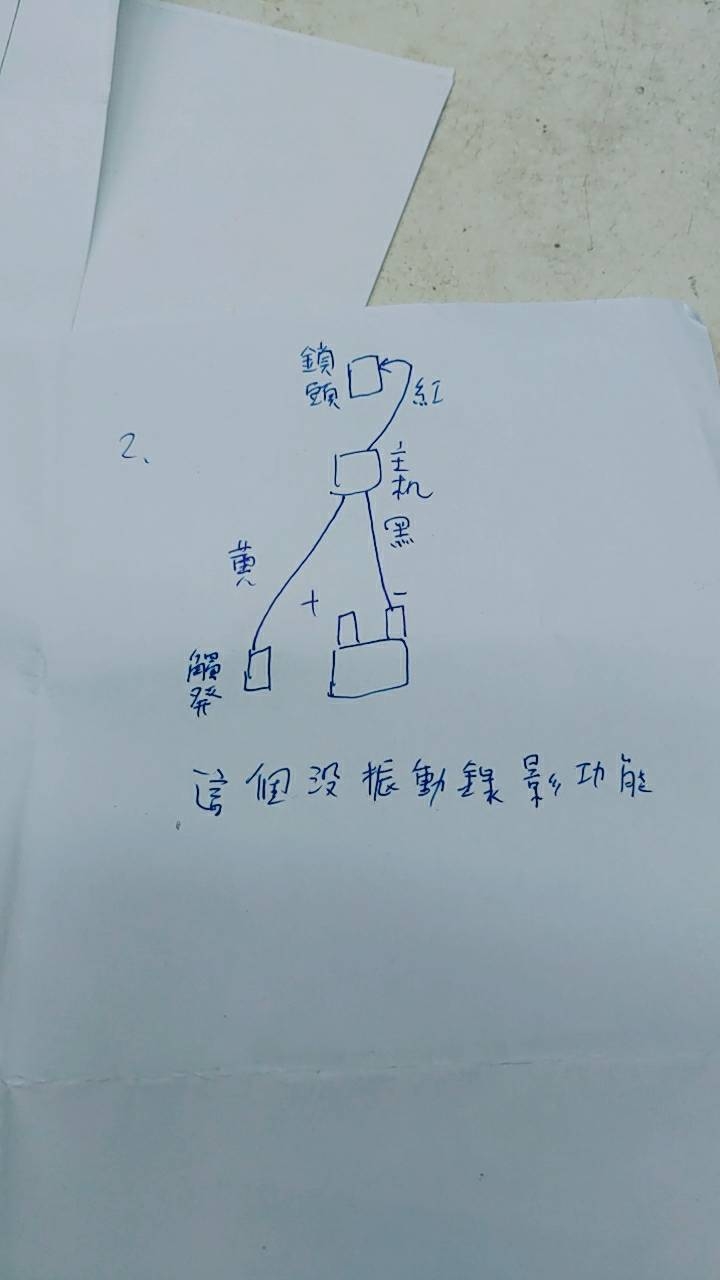 鎖頭
紅
2、
主机
黑
黄
+
-
觸發
這個没振動錄影功能